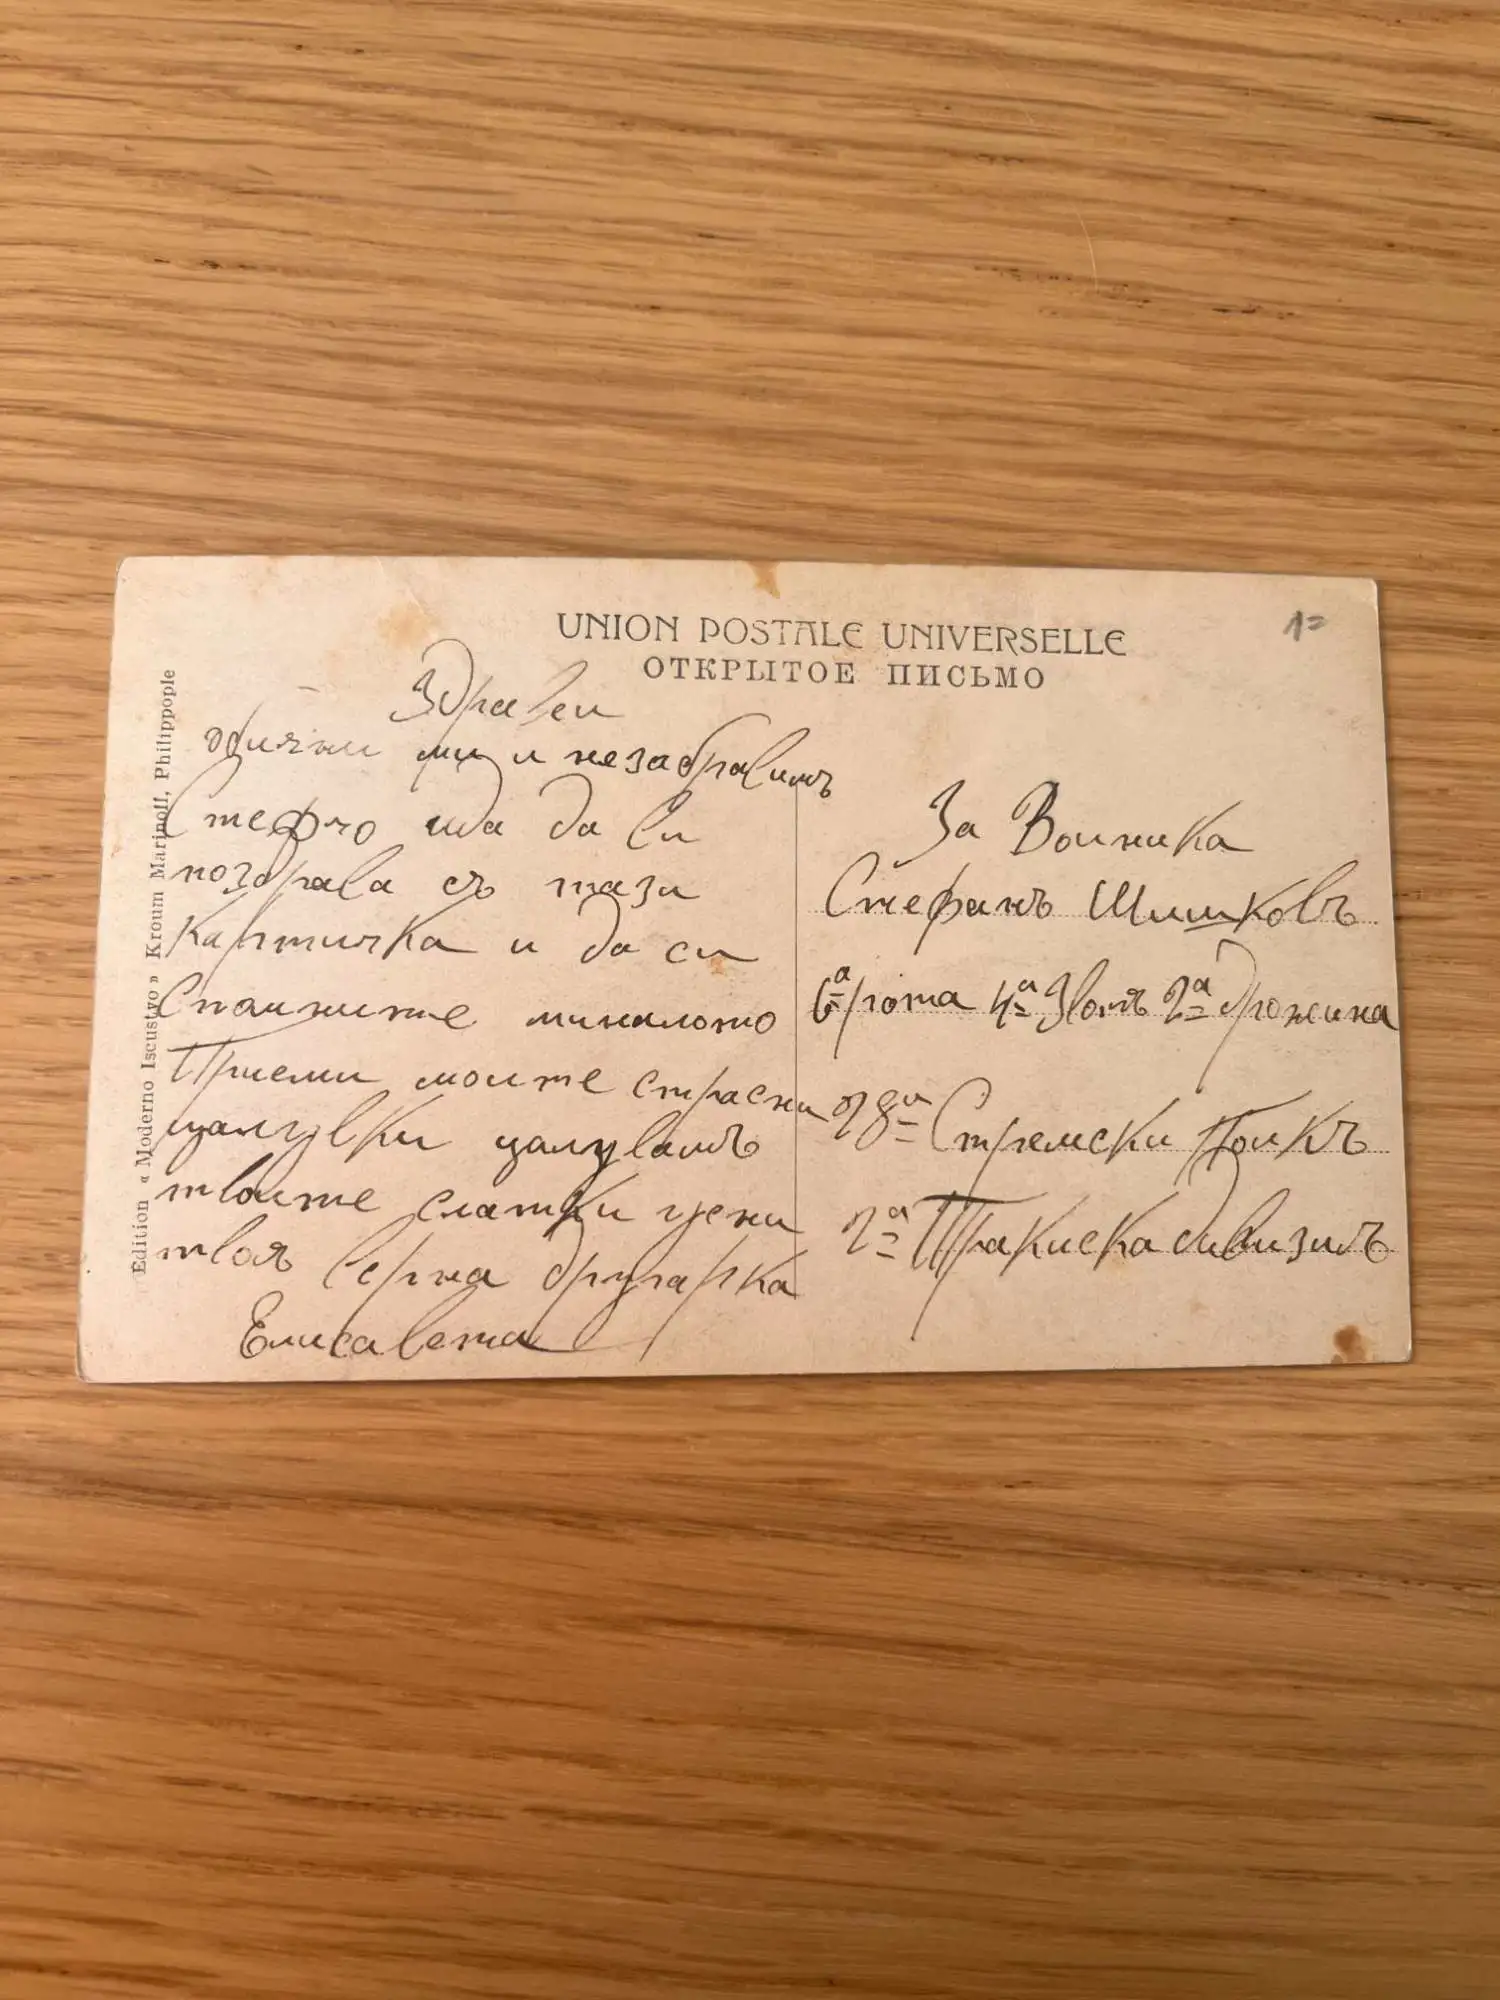 UNION POSTALE UNIVERSELLE
ОТКРЫТОЕ ПИСЬМО
1=
Edition « Moderno Iscustvo » Kroum Marinoff, Philippople
Здравей
обични ми и незабравимъ
Стефчо ида да ви
поздрава съ тази
Картичка и да си
Споините миналото
Приеми моите страсни
цалувки цалувамъ
твоите слатки усни
твоя верна другарка
Елисавета
За Войника
Стефанъ Шишковъ
6а рота 4а Звотъ 2а дрожина
28и Стремски Полкъ
2а Тракиска дивизиъ